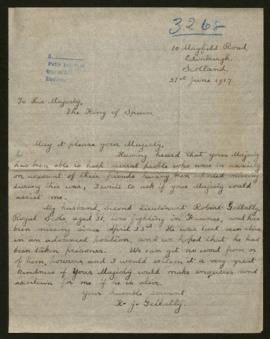 3268
10 Mayfield Road
Edinburgh
Scotland
21st June 1917.
To His Majesty,
The King of Spain
May it please your Majesty,
Having heard that your Majesty
has been able to help several people who were in anxiety
on account of their friends having been reported missing
during this war, I write to ask if your Majesty could
assist me.
My husband, Second Lieutenant Robert
Royal Scots, aged 31, was fighting in France, and has
been missing since April 23rd. He was last seen alive
in an advanced position, and we hoped that he had
been taken prisoner. We can get no word from or
of him, however, and I would esteem it a very great
kindness if Your Majesty would make enquiries and
ascertain for me if he is alive.
Your humble servant,